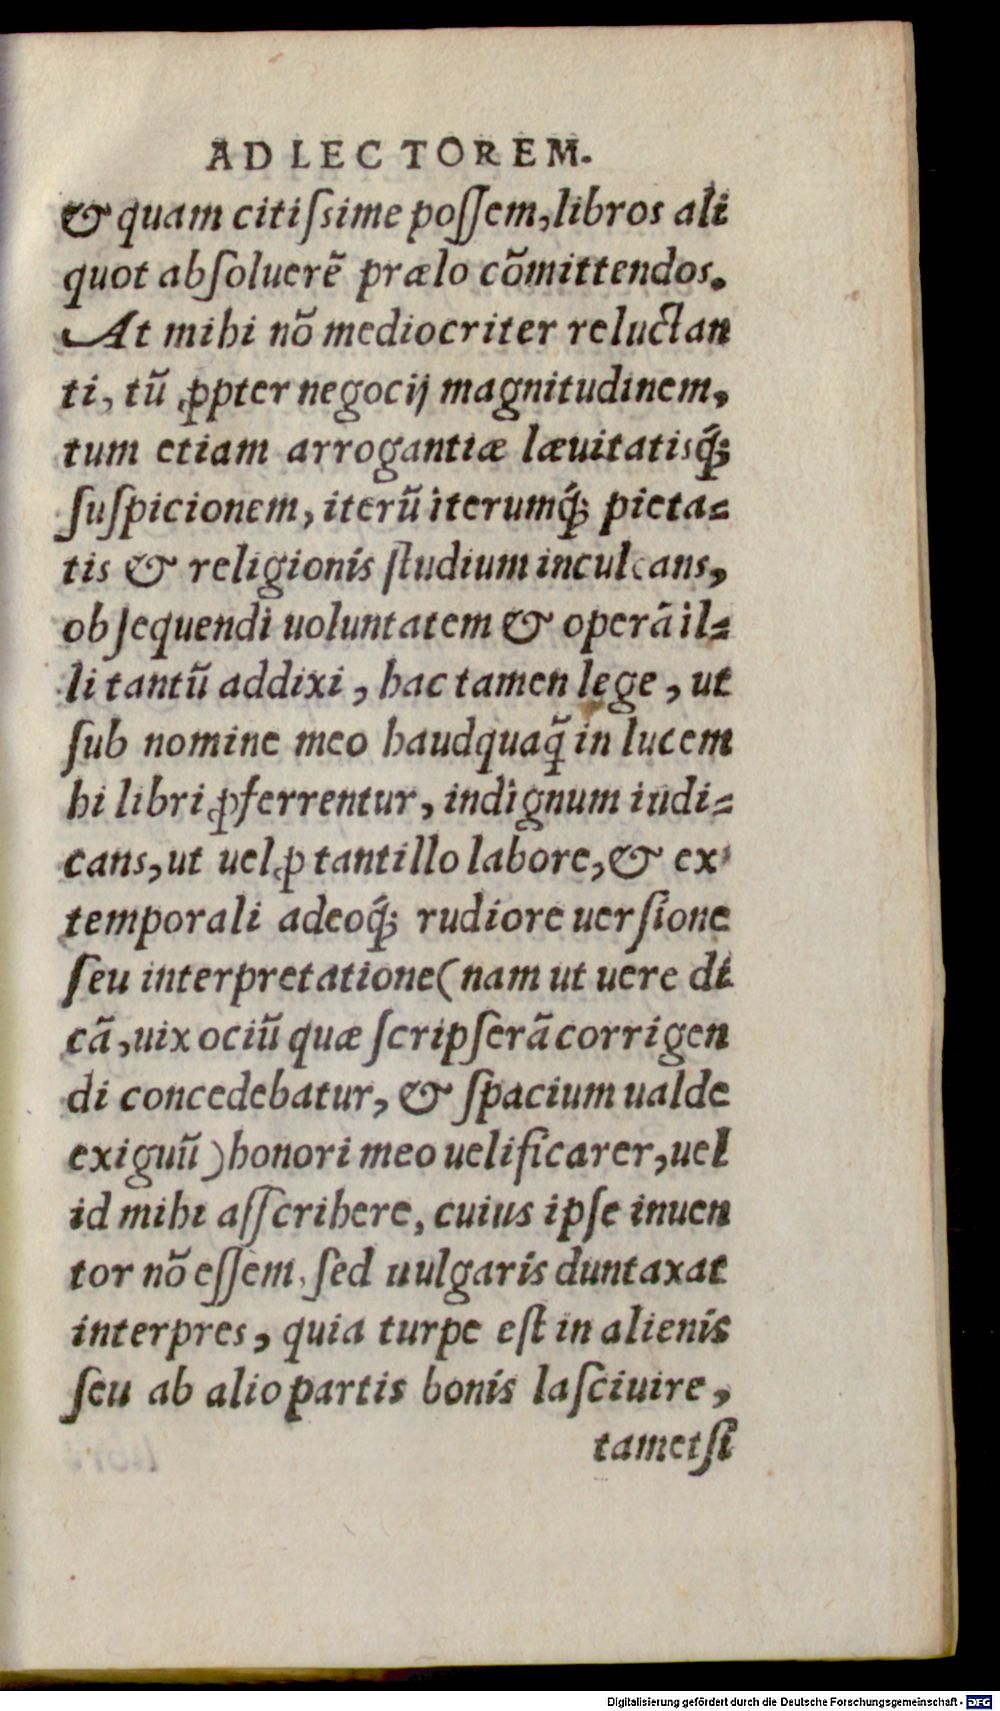 AD LECTOREM.
& quam citiſsime poſſem, libros ali
quot abſoluerẽ prælo cõmittendos.
At mihi nõ mediocriter reluctan
ti, tũ ꝓpter negocij magnitudinem,
tum etiam arrogantiæ læuitatisq́;
ſuſpicionem, iterũ iterumq́; pieta=
tis & religionis ſtudium inculcans,
obſequendi uoluntatem & operã il=
li tantũ addixi, hac tamen lege, ut
ſub nomine meo haudquaq̃ in lucem
hi libri ꝓferrentur, indignum iudi=
cans, ut uel ꝓ tantillo labore, & ex
temporali adeoq́; rudiore uerſione
ſeu interpretatione (nam ut uere di
cã, uix ociũ quæ ſcripſerã corrigen
di concedebatur, & ſpacium ualde
exiguũ) honori meo uelificarer, uel
id mihi aſſcribere, cuius ipſe inuen
tor nõ eſſem, ſed uulgaris duntaxat
interpres, quia turpe eſt in alienis
ſeu ab alio partis bonis laſciuire,
tametſi
Digitalisierung gefördert durch die Deutsche Forschungsgemeinschaft - DFG